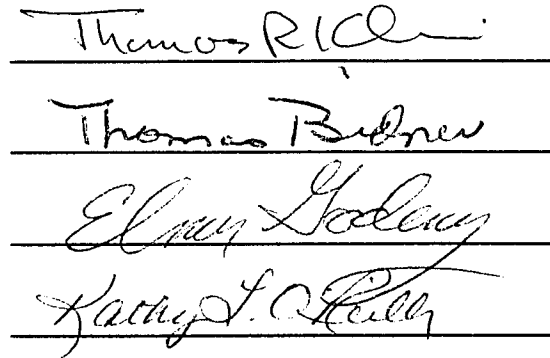 Thomas R
Thomas Bidner
Elmer Godeny
Kathy L. O'Reilly